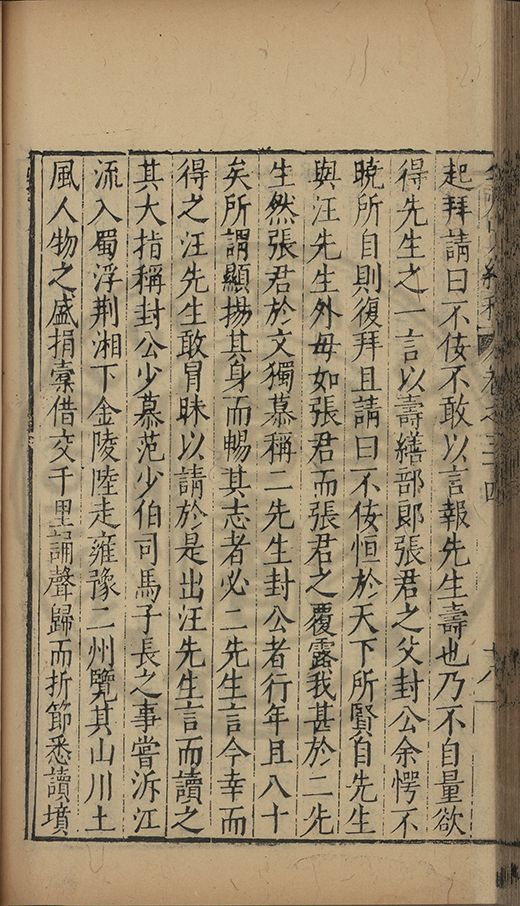 卷之三十四
十八
起拜請曰不佞不敢以言報先生壽也乃不自量欲
得先生之一言以壽繕部郎張君之父封公余愕不
曉所自則復拜且請曰不佞恒於天下所賢自先生
與汪先生外毋如張君而張君之覆露我甚於二先
生然張君於文獨慕稱二先生封公者行年且八十
矣所謂顯揚其身而暢其志者必二先生言今幸而
得之汪先生敢冒昧以請於是出汪先生言而讀之
其大指稱封公少慕范少伯司馬子長之事嘗泝江
流入蜀浮荆湘下金陵陸走雍豫二州覽其山川土
風人物之盛捐橐借交千里誦聲歸而折節悉讀墳